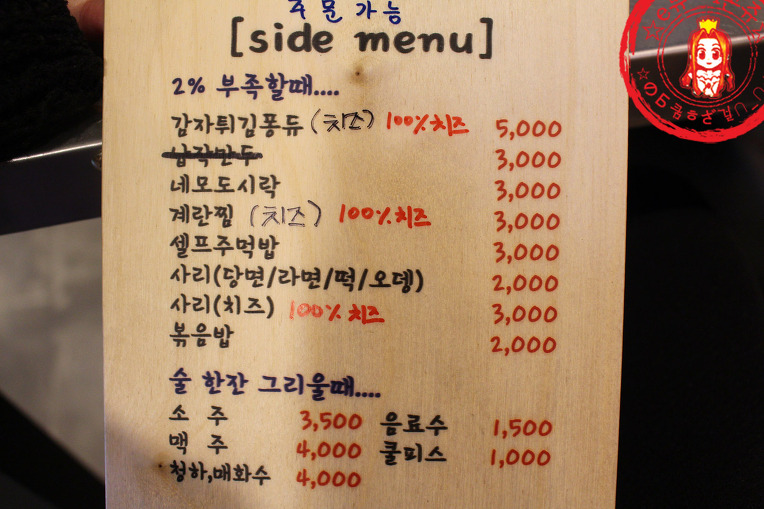 주문가능
[side menu]
2% 부족할때....
감자튀김퐁듀 (치즈) 100% 치즈 5,000
납작만두 3,000
네모도시락 3,000
계란찜 (치즈) 100% 치즈 3,000
셀프주먹밥 3,000
사리(당면/라면/떡/오뎅) 2,000
사리(치즈) 100% 치즈 3,000
볶음밥 2,000
술 한잔 그리울때....
소 주 3,500 음료수 1,500
맥 주 4,000 쿨피스 1,000
청하,매화수 4,000